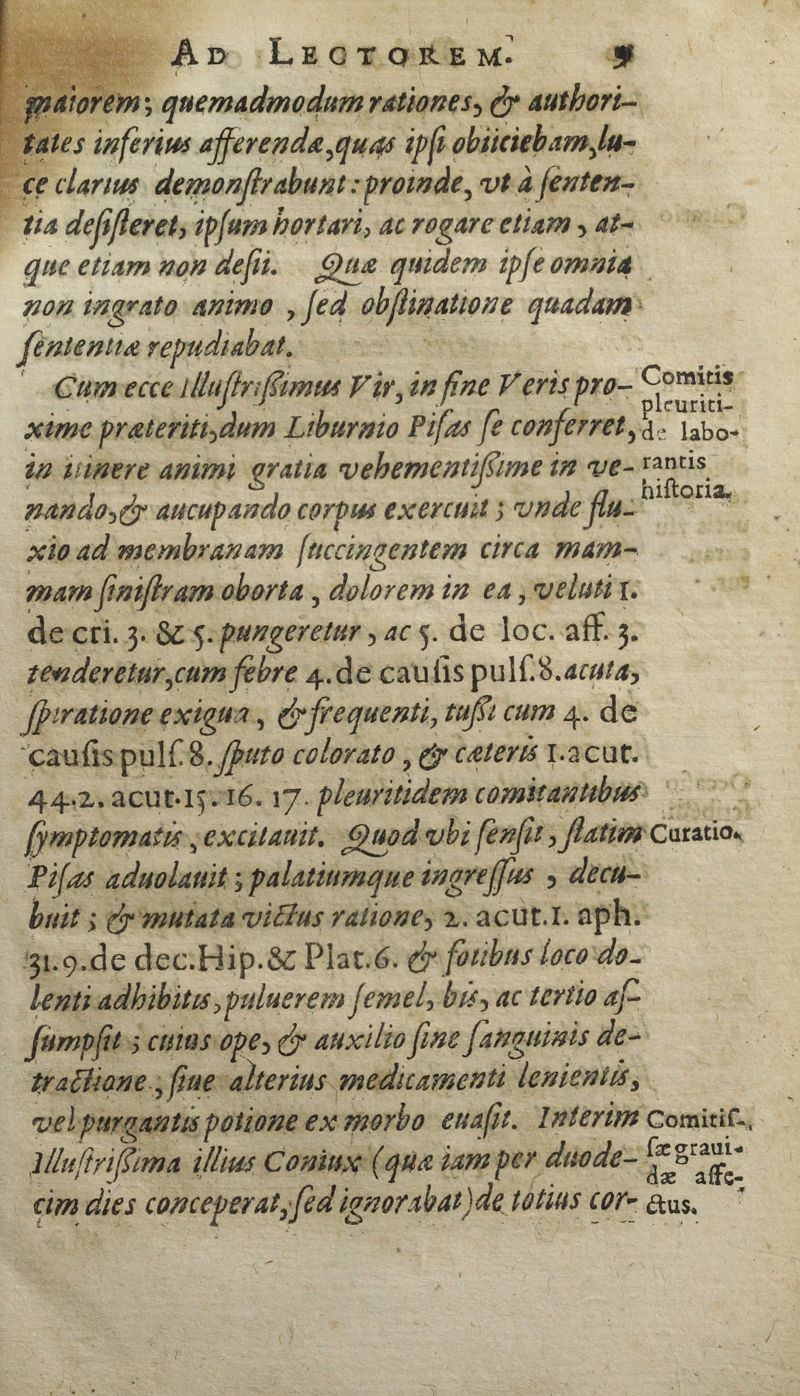 AD LECTOREM. 9
maiorem; quemadmodum rationes, & authori-
tates inferius afferendæ, quas ipsi obiiciebam, lu-
ce clarius demonſtrabunt: proinde, vt à ſenten-
tia deſiſteret, ipſum hortari, ac rogare etiam, at-
que etiam non deſii. Quæ quidem ipſe omnia
non ingrato animo, ſed obſtinatione quadam
ſententiæ repudiabat.
Cum ecce Illuſtriſſimus Vir, in fine Veris pro-
xime præteriti, dum Liburnio Piſas ſe conferret,
in itinere animi gratia vehementiſſime in ve-
nando, & aucupando corpus exercuit; vnde flu-
xio ad membranam ſuccingentem circa mam-
mam ſiniſtram oborta, dolorem in ea, veluti 1.
de cri. 3. & 5. pungeretur, ac 5. de loc. aff. 3.
tenderetur, cum febre 4. de cauſis pulſ. 8. acuta,
ſpiratione exigua, & frequenti, tuſſi cum 4. de
cauſis pulſ. 8. ſputo colorato, & cæteris 1. acut.
44. 2. acut. 15. 16. 17. pleuritidem comitantibus
ſymptomatis, excitauit. Quod vbi ſenſit, ſtatim
Piſas aduolauit; palatiumque ingreſſus, decu-
buit; & mutata victus ratione, 2. acut. 1. aph.
31. 9. de dec. Hip. & Plat. 6. & fotibus loco do-
lenti adhibitis, puluerem ſemel, bis, ac tertio aſ-
ſumpſit; cuius ope, & auxilio ſine ſanguinis de-
tractione, ſiue alterius medicamenti lenientis,
vel purgantis potione ex morbo euaſit. Interim
Illuſtriſſima illius Coniux (quæ iam per duode-
cim dies conceperat, ſed ignorabat) de totius cor-
Comitis
pleuriti-
de labo-
rantis
hiſtoria.
Curatio.
Comitiſ-
ſæ graui-
dæ affe-
ctus.